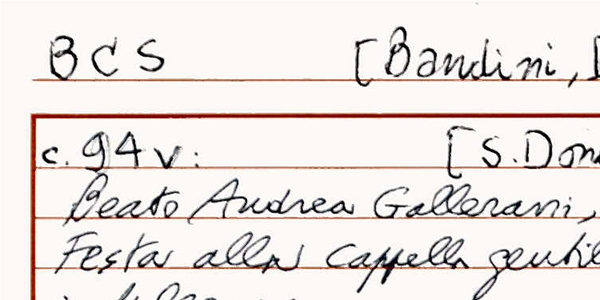 BCS [Bandini,
c. 94v: [S.Don
Beato Andrea Gallerani,
Festa alla Cappella gentil